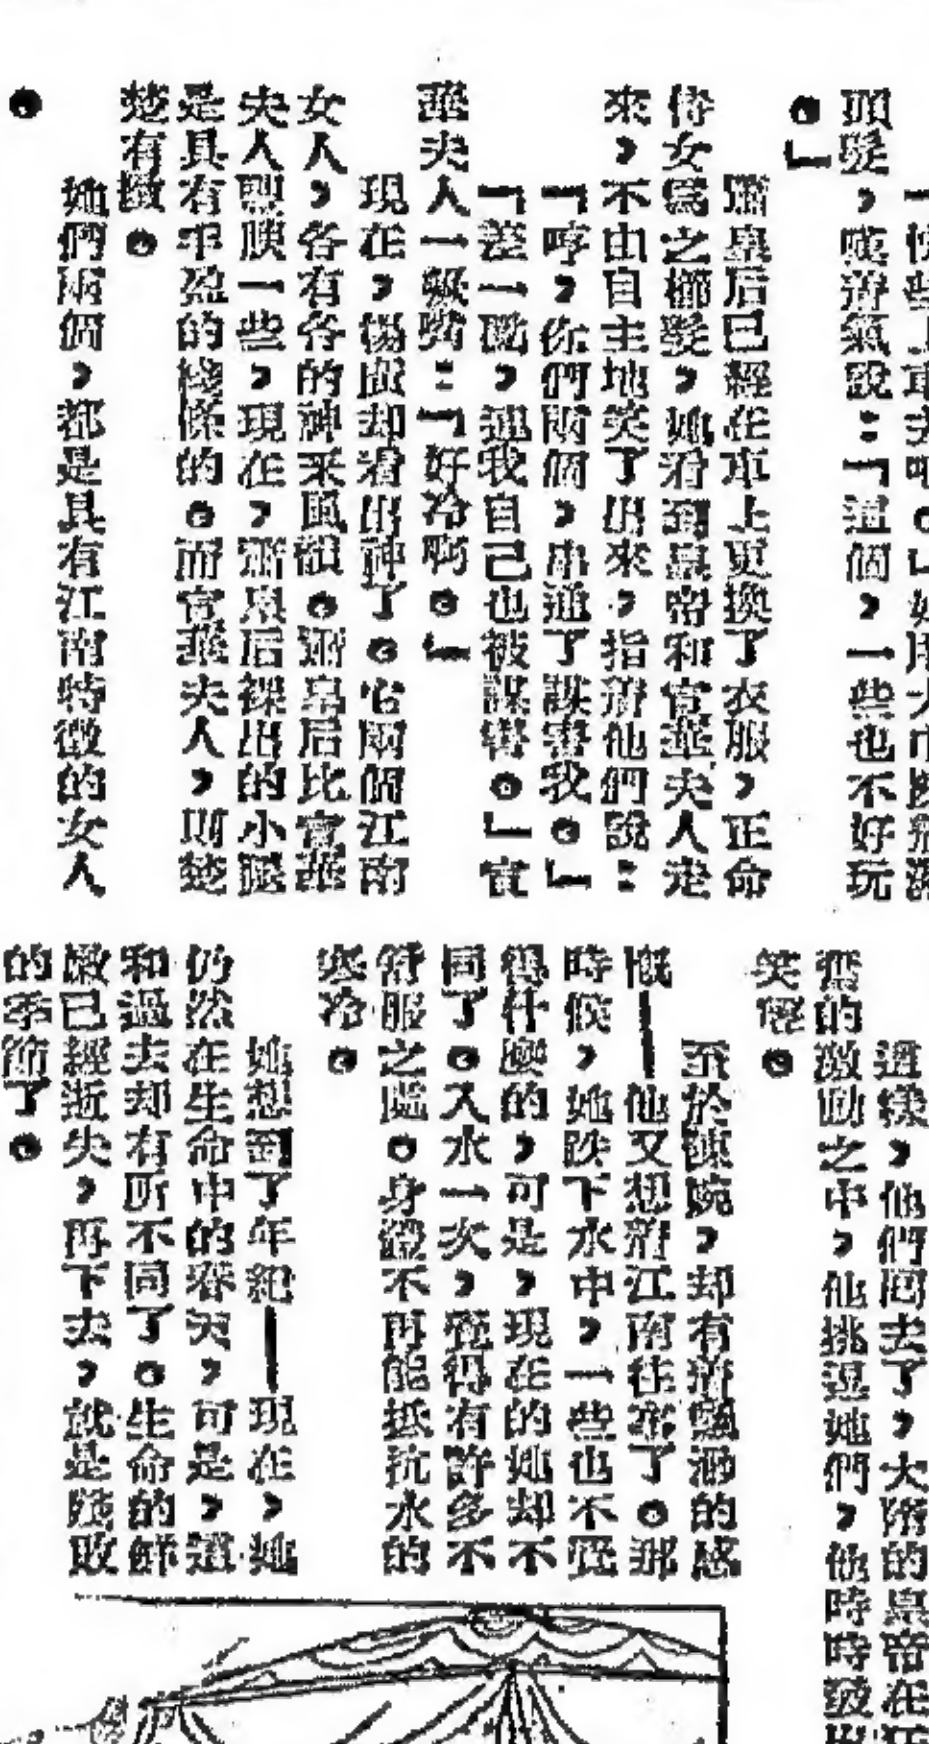 頭髮，嘆着氣說：「這個，一些也不好玩
。」
蕭皇后已經在車上更換了衣服，正命
侍女爲之櫛髮，她看到皇帝和宣華夫人走
來，不由自主地笑了出來，指着他們說：
「哼，你們兩個，串通了謀害我。」
「差一點，連我自己也被謀害。」宣
華夫人一噘嘴：「好冷啊。」
現在，楊廣却看出神了。它兩個江南
女人，各有各的神采風韻。蕭皇后比宣華
夫人豐腴一些，現在，蕭皇后裸出的小腿
是具有丰盈的綫條的。而宣華夫人，則楚
楚有緻。
她們兩個，都是具有江南特徵的女人
。
這樣，他們回去了，大隋的皇帝在狂
蕩的激動之中，他挑逗她們，他時時發出
笑聲。
至於陳婉，却有着飄渺的感
慨——他又想着江南往事了。那
時候，她跌下水中，一些也不覺
得什麼的，可是，現在的她却不
同了。入水一次，覺得有許多不
舒服之處。身體不再能抵抗水的
寒冷。
她想到了年紀——現在，她
仍然在生命中的春天，可是，這
和過去却有所不同了。生命的鮮
嫩已經逝失，再下去，就是殘敗
的季節了。